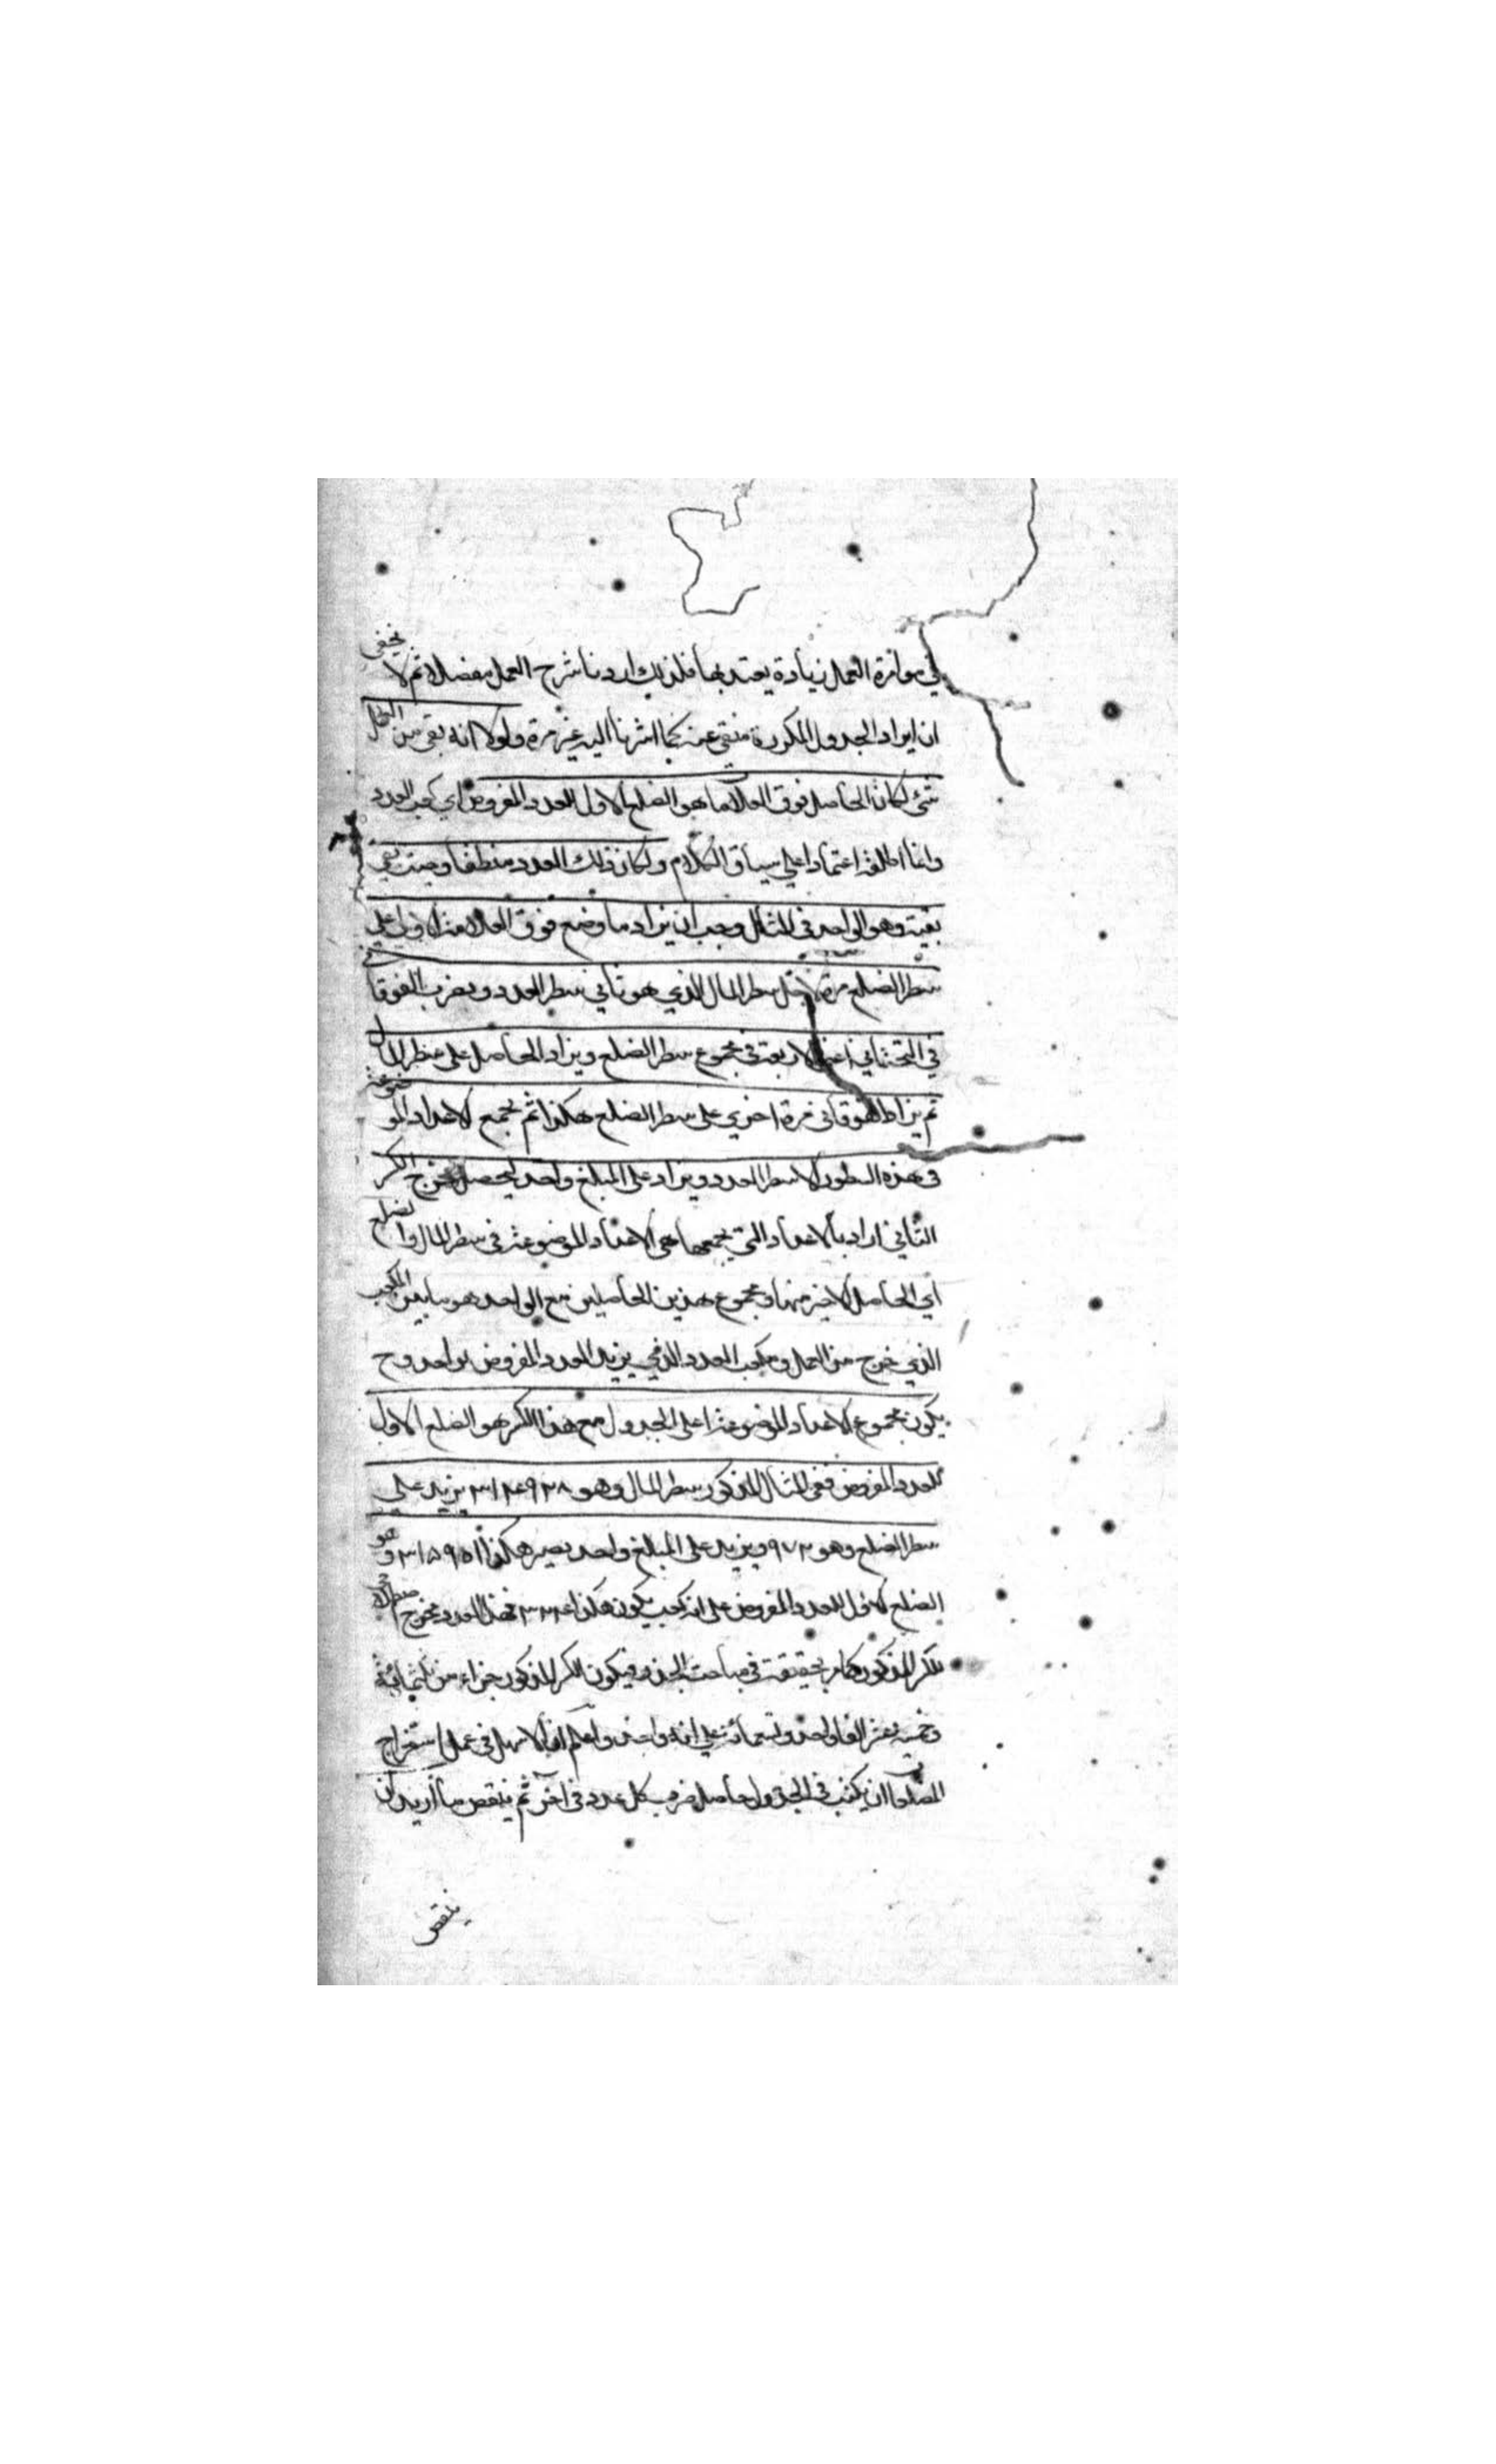 في موامرة العمل زيادة يعتد بها فلذلك اردنا شرح العمل مفصلا ثم لا يخفى
ان ايراد الجدول المكررة عنه كما اشرنا اليه غير مرة ولولا انه بقي من
شئ لكان الحاصل فوق العلاما هو الضلع الاول للعدد المفروض اي كعب العدد
وانما اطلقه اعتمادا علي سياق الكلام ولكان ذلك العدد منطقا وحيث بقي
بقية وهو الواحد في المثال وجب ان يزاد ما وضع فوق العلامة الاولي علي
سطر الضلع مرة لاجل سطر المال الذي هو ثاني سطر العدد ويضرب الفوقا
في التحتاني الاربعة في مجموع سطر الضلع ويزاد الحاصل على سطر المال
ثم يزاد الفوقاني مرة اخري على سطر الضلع هكذا ثم يجمع الاعداد الموضوعة
في هذه السطور الا سطر العدد ويزاد على المبلغ واحد ليحصل مخرج الكسر
الثاني اراد بالاعداد التي يجمعها هي الاعداد الموضوعة في سطر المال والضلع
اي الحاصل الاخير منها ومجموع هذين الحاصلين مع الواحد هو ما بين المكعب
الذي خرج من العمل ومكعب العدد الذي يزيد العدد المفروض بواحد وح
يكون مجموع الاعداد الموضوعة اعلى الجدول مع هذا الكسر هو الضلع الاول
للعدد المفروض ففي المثال المذكور سطر المال وهو ٣١٤٩٢٨ يزيد علي
سطر الضلع وهو ٩٧٢ ويزيد على المبلغ واحد يصير هكذا ٣١٥٩٠١ وهو
الضلع الاول للعدد المفروض على انه كعب يكون هكذا ٣٢٤ فهذا العدد مخرج
للكسر المذكور كما مر تحقيقه في مباحث الجذر فيكون الكسر المذكور جزاء من ثلثمائة
وخمسة عشر الفا واحد وتسعمائة علي انه واحد واعلم ان الاسهل في عمل استخراج
المضلعا ان يكتب في الجدول حاصل ضرب كل عدد في اخر ثم ينقص ما اريد ان
ينقص